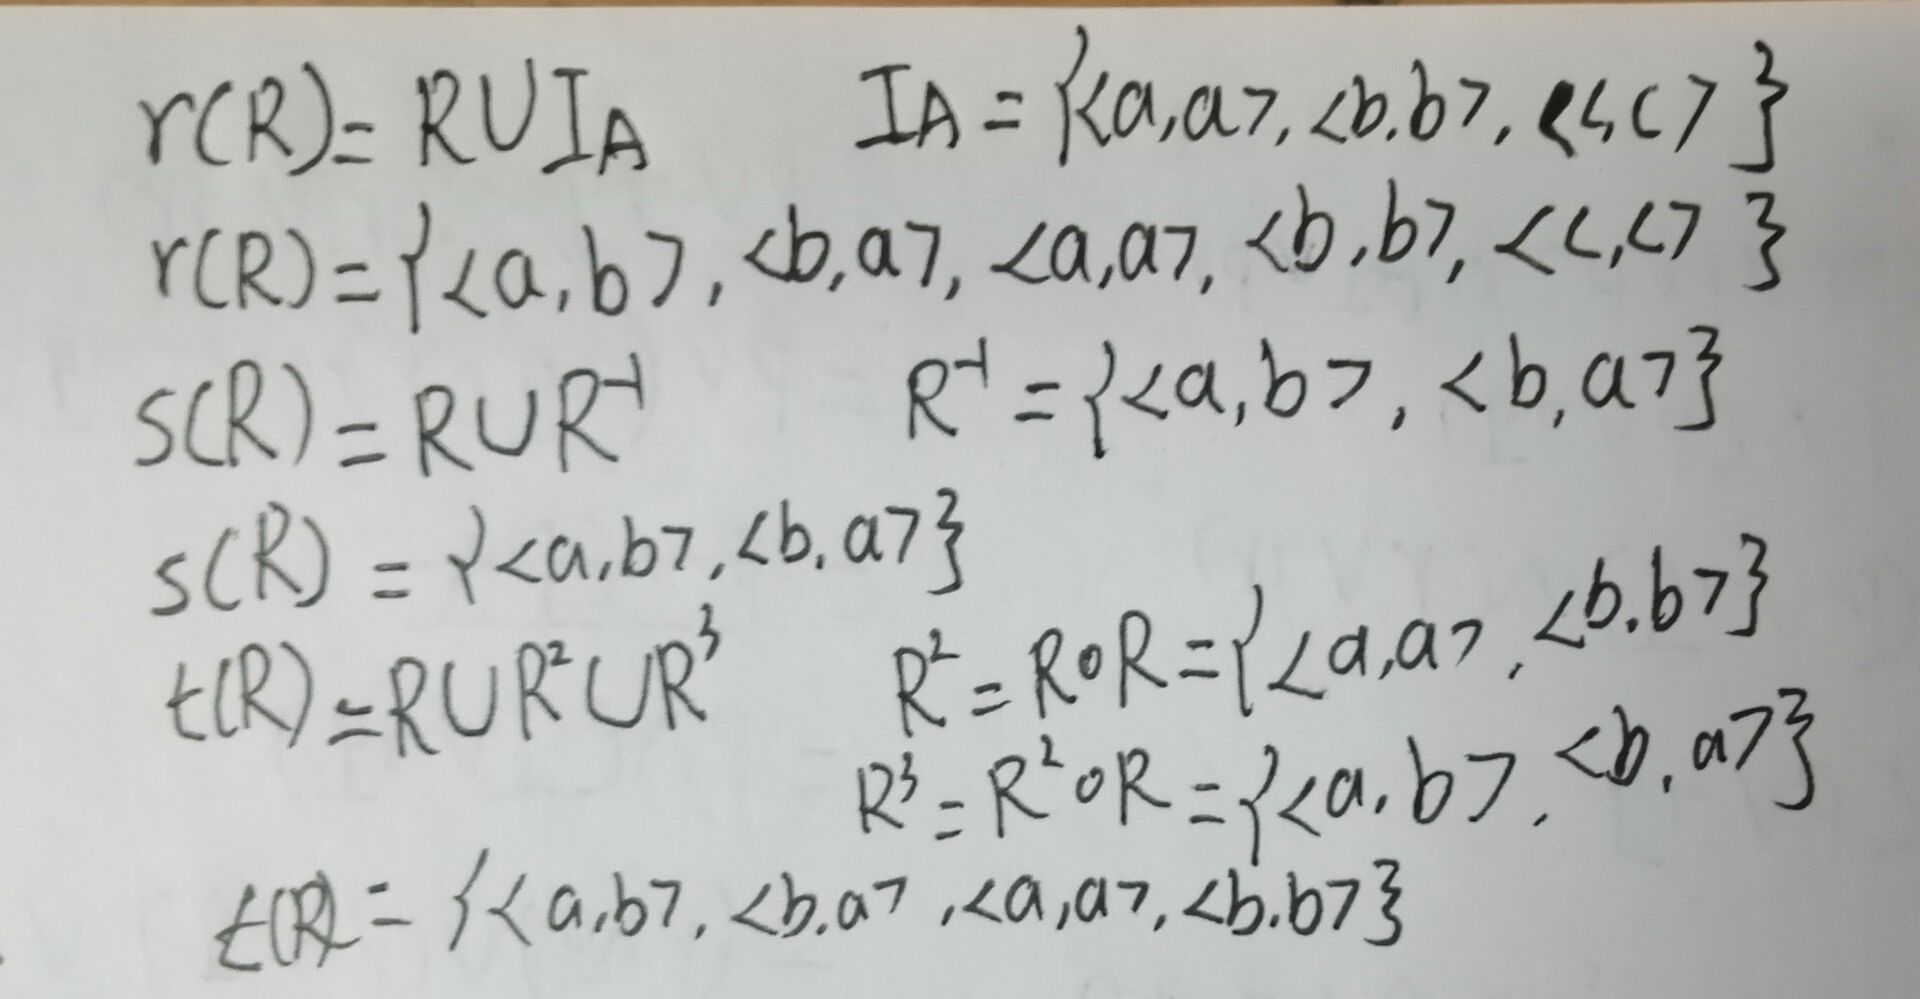 r(R)= R∪I_A   I_A = {<a,a>,<b.b>,<c,c>}
r(R)={<a,b>,<b,a>,<a,a>,<b,b>,<c,c>}
s(R)=R∪R⁻¹   R⁻¹={<a,b>,<b,a>}
s(R)={<a,b>,<b,a>}
t(R)=R∪R²∪R³   R²=R∘R={<a,a>,<b.b>}
R³=R²∘R={<a,b>,<b,a>}
t(R)={<a,b>,<b.a>,<a,a>,<b.b>}